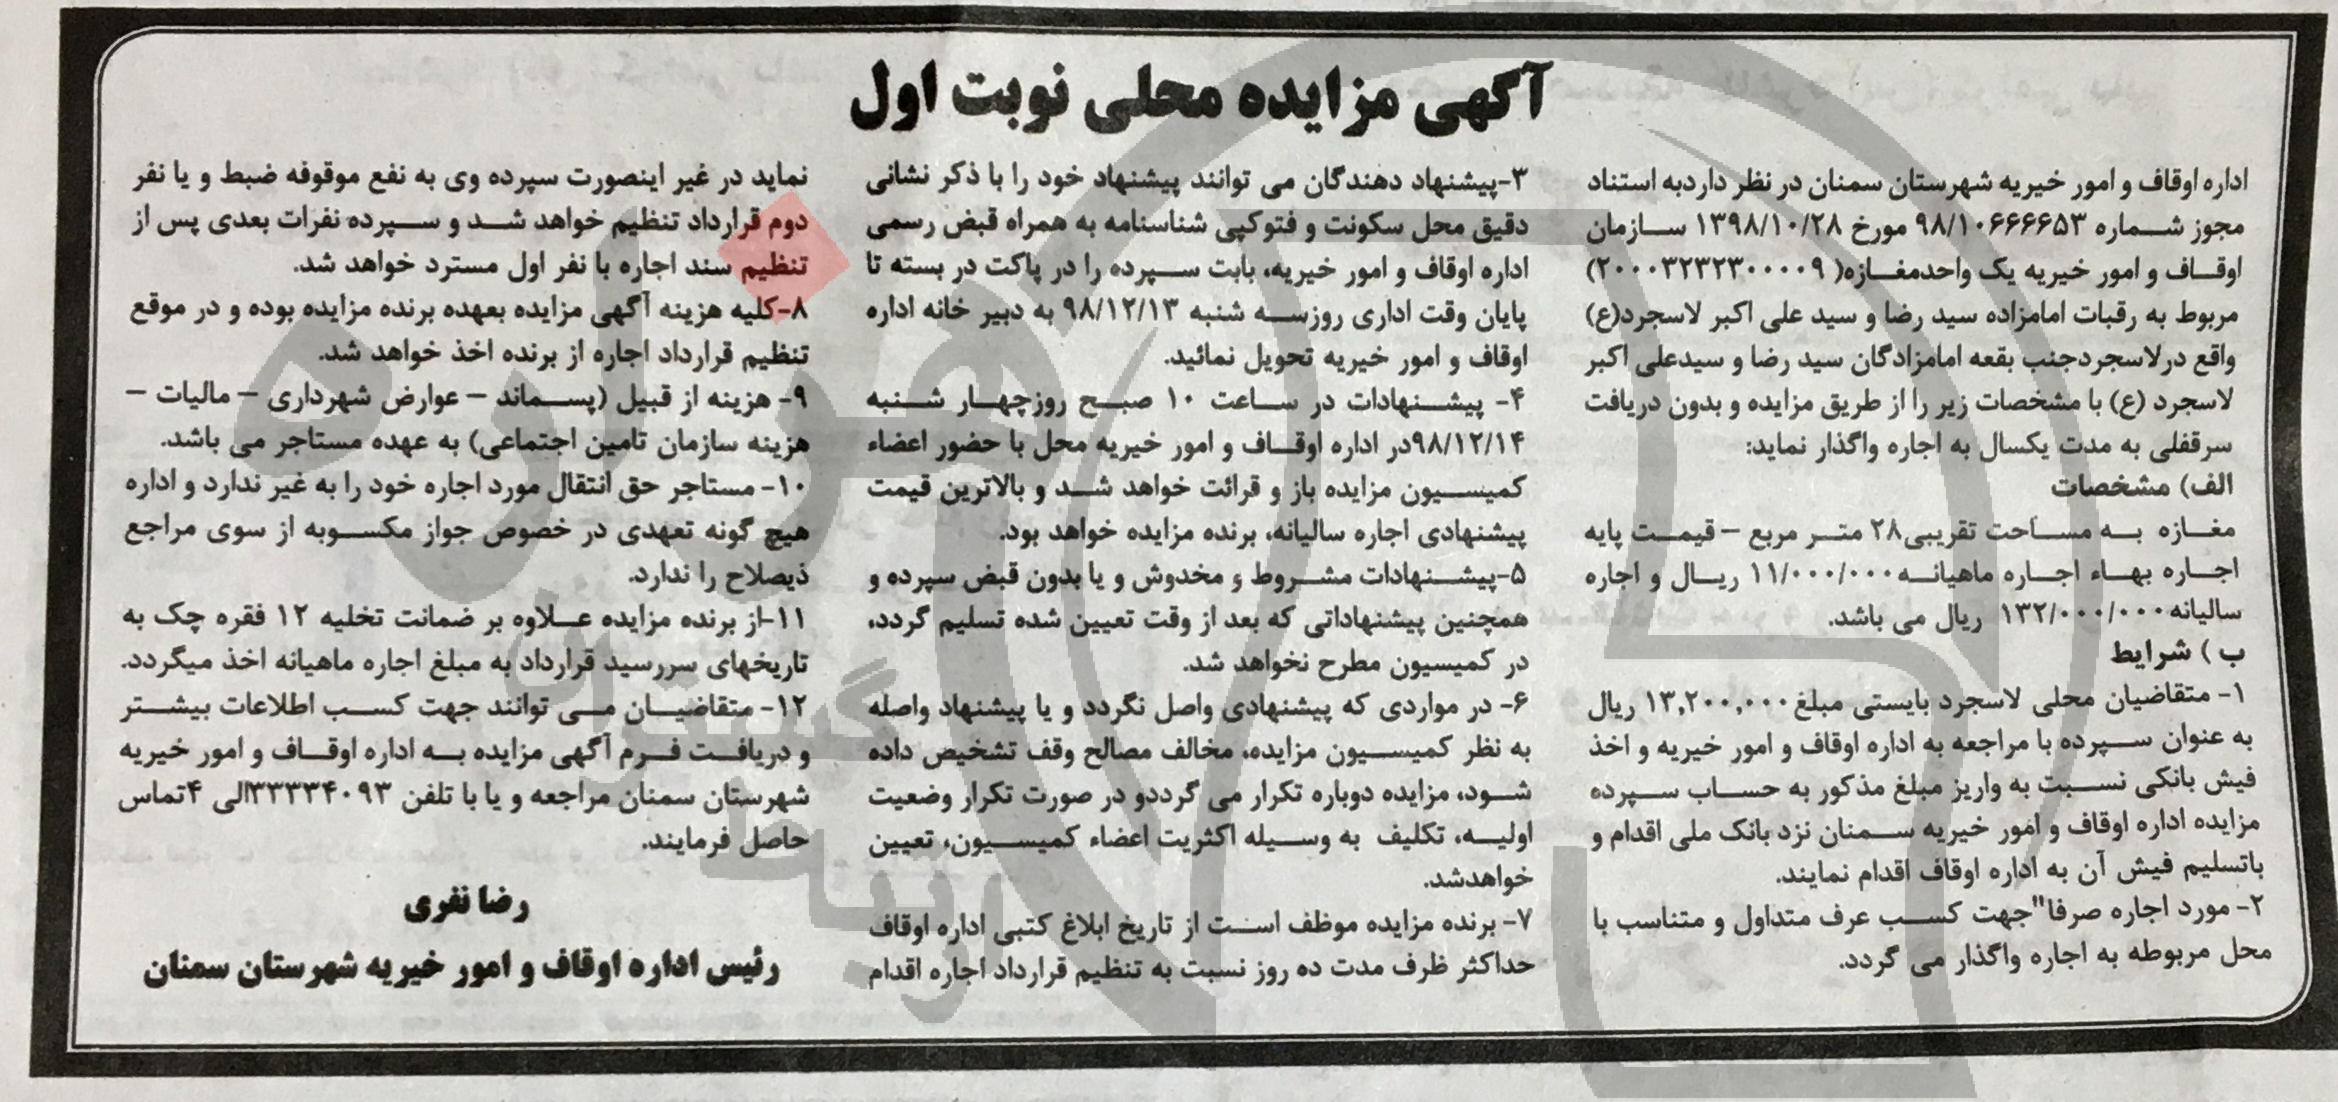 آگهی مزایده محلی نوبت اول
اداره اوقاف و امور خیریه شهرستان سمنان در نظر داردبه استناد
مجوز شماره ۹۸/۱۰۶۶۶۶۵۳ مورخ ۱۳۹۸/۱۰/۲۸ سازمان
اوقاف و امور خیریه یک واحدمغازه( ۲۰۰۰۳۲۳۲۳۰۰۰۰۹)
مربوط به رقبات امامزاده سید رضا و سید علی اکبر لاسجرد(ع)
واقع درلاسجردجنب بقعه امامزادگان سید رضا و سیدعلی اکبر
لاسجرد (ع) با مشخصات زیر را از طریق مزایده و بدون دریافت
سرقفلی به مدت یکسال به اجاره واگذار نماید:
الف) مشخصات
مغازه به مساحت تقریبی۲۸ متر مربع – قیمت پایه
اجاره بهاء اجاره ماهیانه۱۱/۰۰۰/۰۰۰ ریال و اجاره
سالیانه۱۳۲/۰۰۰/۰۰۰ ریال می باشد.
ب ) شرایط
۱- متقاضیان محلی لاسجرد بایستی مبلغ۱۳,۲۰۰,۰۰۰ ریال
به عنوان سپرده با مراجعه به اداره اوقاف و امور خیریه و اخذ
فیش بانکی نسبت به واریز مبلغ مذکور به حساب سپرده
مزایده اداره اوقاف و امور خیریه سمنان نزد بانک ملی اقدام و
باتسلیم فیش آن به اداره اوقاف اقدام نمایند.
۲- مورد اجاره صرفا"جهت کسب عرف متداول و متناسب با
محل مربوطه به اجاره واگذار می گردد.
۳-پیشنهاد دهندگان می توانند پیشنهاد خود را با ذکر نشانی
دقیق محل سکونت و فتوکپی شناسنامه به همراه قبض رسمی
اداره اوقاف و امور خیریه، بابت سپرده را در پاکت در بسته تا
پایان وقت اداری روزسه شنبه ۹۸/۱۲/۱۳ به دبیر خانه اداره
اوقاف و امور خیریه تحویل نمائید.
۴- پیشنهادات در ساعت ۱۰ صبح روزچهار شنبه
۹۸/۱۲/۱۴در اداره اوقاف و امور خیریه محل با حضور اعضاء
کمیسیون مزایده باز و قرائت خواهد شد و بالاترین قیمت
پیشنهادی اجاره سالیانه، برنده مزایده خواهد بود.
۵-پیشنهادات مشروط و مخدوش و یا بدون قبض سپرده و
همچنین پیشنهاداتی که بعد از وقت تعیین شده تسلیم گردد،
در کمیسیون مطرح نخواهد شد.
۶- در مواردی که پیشنهادی واصل نگردد و یا پیشنهاد واصله
به نظر کمیسیون مزایده، مخالف مصالح وقف تشخیص داده
شود، مزایده دوباره تکرار می گرددو در صورت تکرار وضعیت
اولیه، تکلیف به وسیله اکثریت اعضاء کمیسیون، تعیین
خواهدشد.
۷- برنده مزایده موظف است از تاریخ ابلاغ کتبی اداره اوقاف
حداکثر ظرف مدت ده روز نسبت به تنظیم قرارداد اجاره اقدام
نماید در غیر اینصورت سپرده وی به نفع موقوفه ضبط و یا نفر
دوم قرارداد تنظیم خواهد شد و سپرده نفرات بعدی پس از
تنظیم سند اجاره با نفر اول مسترد خواهد شد.
۸-کلیه هزینه آگهی مزایده بعهده برنده مزایده بوده و در موقع
تنظیم قرارداد اجاره از برنده اخذ خواهد شد.
۹- هزینه از قبیل (پسماند – عوارض شهرداری – مالیات –
هزینه سازمان تامین اجتماعی) به عهده مستاجر می باشد.
۱۰- مستاجر حق انتقال مورد اجاره خود را به غیر ندارد و اداره
هیچ گونه تعهدی در خصوص جواز مکسوبه از سوی مراجع
ذیصلاح را ندارد.
۱۱-از برنده مزایده علاوه بر ضمانت تخلیه ۱۲ فقره چک به
تاریخهای سررسید قرارداد به مبلغ اجاره ماهیانه اخذ میگردد.
۱۲- متقاضیان می توانند جهت کسب اطلاعات بیشتر
و دریافت فرم آگهی مزایده به اداره اوقاف و امور خیریه
شهرستان سمنان مراجعه و یا با تلفن ۳۳۳۳۴۰۹۳الی ۴تماس
حاصل فرمایند.
رضا نفری
رئیس اداره اوقاف و امور خیریه شهرستان سمنان